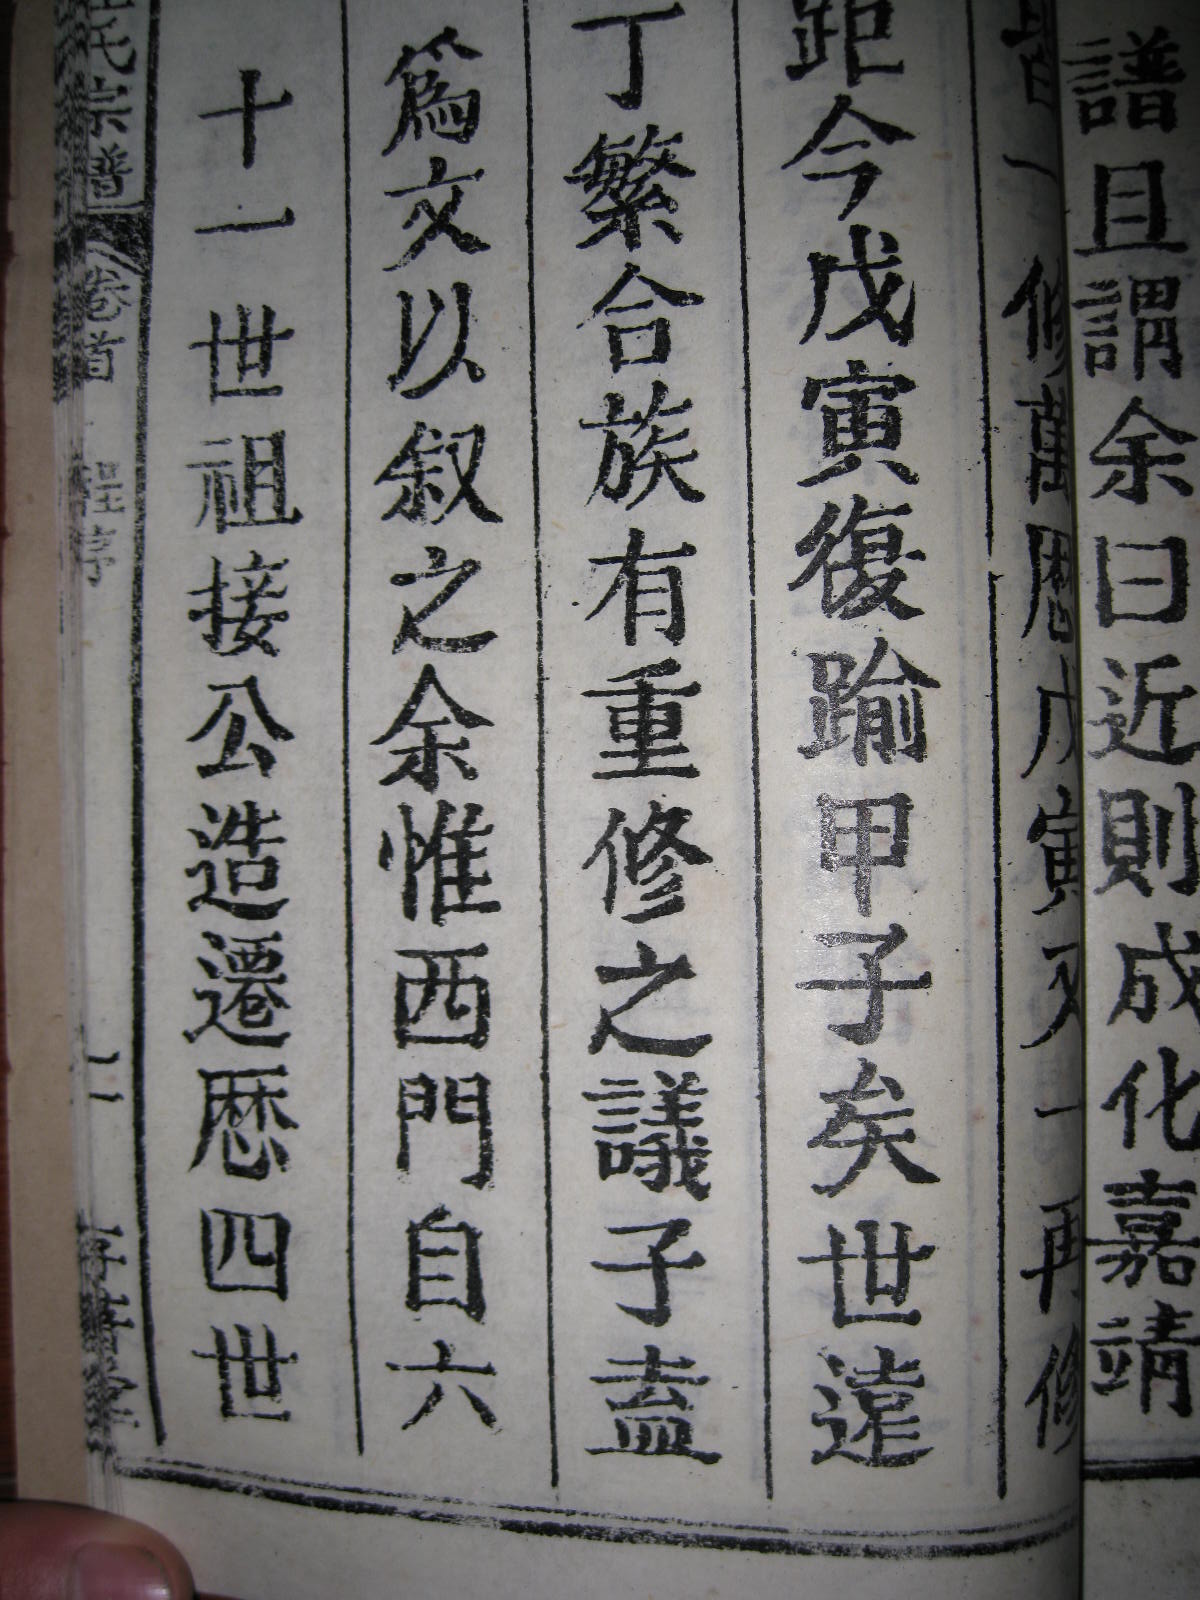 譜且謂余曰近則成化嘉靖
修萬曆戊寅又一再修
距今戊寅復踰甲子矣世遠
丁繁合族有重修之議子盍
為文以叙之余惟西門自六
十一世祖接公造遷歷四世
氏宗譜 卷首 程序 二